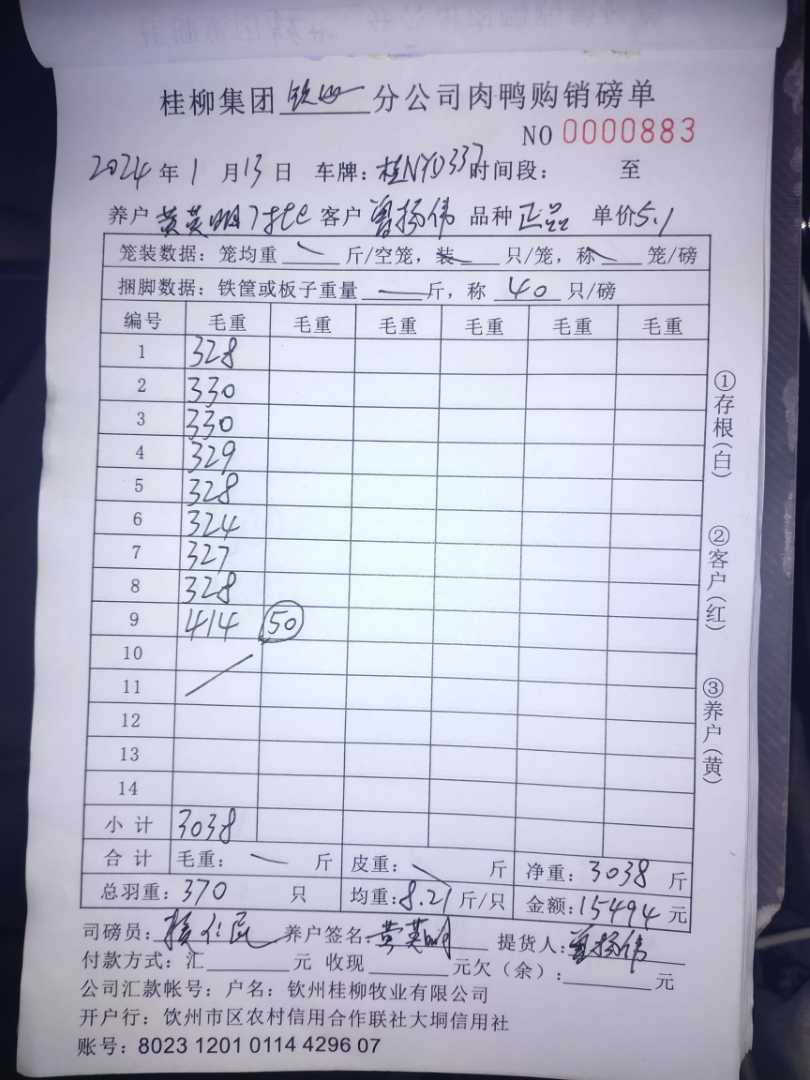 桂柳集团 钦州 分公司肉鸭购销磅单
NO 0000883
2024 年 1 月 13 日 车牌: 桂NYD337 时间段: 至
养户 黄英明 客户 曾扬伟 品种 正品 单价 5.1
笼装数据: 笼均重 斤/空笼, 装 只/笼, 称 笼/磅
捆脚数据: 铁筐或板子重量 — 斤, 称 40 只/磅
编号 毛重 毛重 毛重 毛重 毛重 毛重
1 328
2 330
3 330
4 329
5 328
6 324
7 327
8 328
9 414 50
10
11
12
13
14
小计 3038
合计 毛重: 斤 皮重: 斤 净重: 3038 斤
总羽重: 370 只 均重: 8.21 斤/只 金额: 15494 元
司磅员: 养户签名: 黄英明 提货人: 曾扬伟
付款方式: 汇 元 收现 元欠(余): 元
公司汇款帐号: 户名: 钦州桂柳牧业有限公司
开户行: 饮州市区农村信用合作联社大垌信用社
账号: 8023 1201 0114 4296 07
①存根(白)
②客户(红)
③养户(黄)